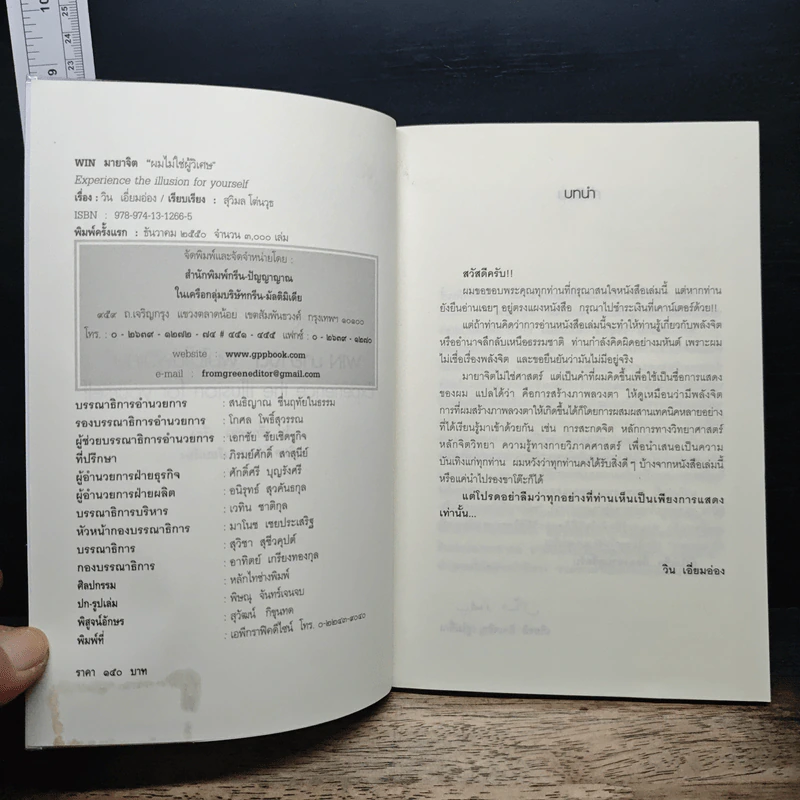 WIN มายาจิต "ผมไม่ใช่ผู้วิเศษ"
Experience the illusion for yourself
เรื่อง : วิน เอี่ยมอ่อง / เรียบเรียง : สุวิมล โตนวุธ
ISBN : 978-974-13-1266-5
พิมพ์ครั้งแรก : ธันวาคม ๒๕๕๐ จำนวน ๓,๐๐๐ เล่ม
จัดพิมพ์และจัดจำหน่ายโดย :
สำนักพิมพ์กรีน-ปัญญาญาณ
ในเครือกลุ่มบริษัทกรีน-มัลติมีเดีย
๙๕๙ ถ.เจริญกรุง แขวงตลาดน้อย เขตสัมพันธวงศ์ กรุงเทพฯ ๑๐๑๐๐
โทร. : ๐ - ๒๖๓๙ - ๑๒๗๒ - ๗๔ # ๔๕๑ - ๔๕๕ แฟกซ์ : ๐ - ๒๖๓๙ - ๑๒๗๐
website : www.gppbook.com
e-mail : fromgreeneditor@gmail.com
บรรณาธิการอำนวยการ : สนธิญาณ ชื่นฤทัยในธรรม
รองบรรณาธิการอำนวยการ : โกศล โพธิ์สุวรรณ
ผู้ช่วยบรรณาธิการอำนวยการ : เอกชัย ชัยเชิดชูกิจ
ที่ปรึกษา : ภิรมย์ศักดิ์ สาสุนีย์
ผู้อำนวยการฝ่ายธุรกิจ : ศักดิ์ศรี บุญรังศรี
ผู้อำนวยการฝ่ายผลิต : อนิรุทธ์ สุวคันธกุล
บรรณาธิการบริหาร : เวทิน ชาติกุล
หัวหน้ากองบรรณาธิการ : มาโนช เชยประเสริฐ
บรรณาธิการ : สุวิชา สุชีวคุปต์
กองบรรณาธิการ : อาทิตย์ เกรียงทองกุล
ศิลปกรรม : หลักไทช่างพิมพ์
ปก-รูปเล่ม : พิษณุ จันทร์เจนจบ
พิสูจน์อักษร : สุวัฒน์ กิขุนทด
พิมพ์ที่ : เอพีกราฟิคดีไซน์ โทร. ๐-๒๒๔๓-๙๐๔๐
ราคา ๑๔๐ บาท
บทนำ
สวัสดีครับ!!
ผมขอขอบพระคุณทุกท่านที่กรุณาสนใจหนังสือเล่มนี้ แต่หากท่าน
ยังยืนอ่านเฉยๆ อยู่ตรงแผงหนังสือ กรุณาไปชำระเงินที่เคาน์เตอร์ด้วย!!
แต่ถ้าท่านคิดว่าการอ่านหนังสือเล่มนี้จะทำให้ท่านรู้เกี่ยวกับพลังจิต
หรืออำนาจลึกลับเหนือธรรมชาติ ท่านกำลังคิดผิดอย่างมหันต์ เพราะผม
ไม่เชื่อเรื่องพลังจิต และขอยืนยันว่ามันไม่มีอยู่จริง
มายาจิตไม่ใช่ศาสตร์ แต่เป็นคำที่ผมคิดขึ้นเพื่อใช้เป็นชื่อการแสดง
ของผม แปลได้ว่า คือการสร้างภาพลวงตา ให้ดูเหมือนว่ามีพลังจิต
การที่ผมสร้างภาพลวงตาให้เกิดขึ้นได้ก็โดยการผสมผสานเทคนิคหลายอย่าง
ที่ได้เรียนรู้มาเข้าด้วยกัน เช่น การสะกดจิต หลักการทางวิทยาศาสตร์
หลักจิตวิทยา ความรู้ทางกายวิภาคศาสตร์ เพื่อนำเสนอเป็นความ
บันเทิงแก่ทุกท่าน ผมหวังว่าทุกท่านคงได้รับสิ่งดีๆ บ้างจากหนังสือเล่มนี้
หรือแค่นำไปรองขาโต๊ะก็ได้
แต่โปรดอย่าลืมว่าทุกอย่างที่ท่านเห็นเป็นเพียงการแสดง
เท่านั้น...
วิน เอี่ยมอ่อง